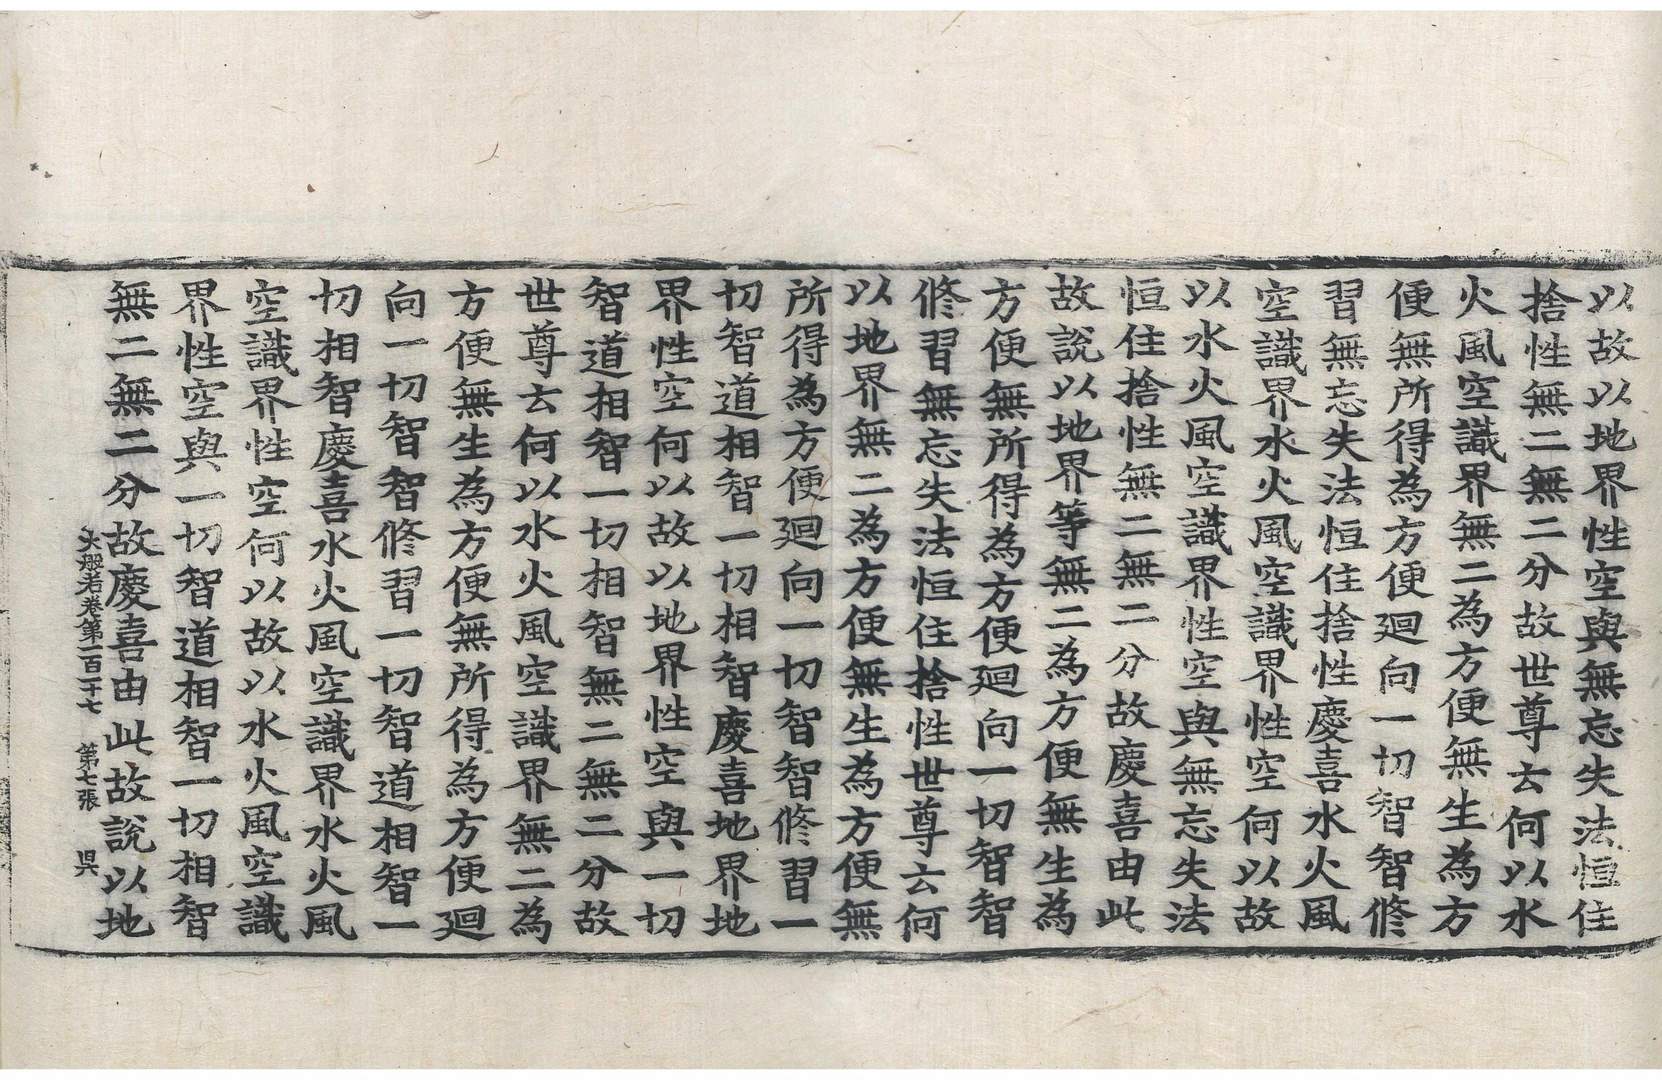 以故以地界性空與無忘失法恒住
捨性無二無二分故世尊云何以水
火風空識界無二為方便無生為方
便無所得為方便廻向一切智智修
習無忘失法恒住捨性慶喜水火風
空識界水火風空識界性空何以故
以水火風空識界性空與無忘失法
恒住捨性無二無二分故慶喜由此
故說以地界等無二為方便無生為
方便無所得為方便廻向一切智智
修習無忘失法恒住捨性世尊云何
以地界無二為方便無生為方便無
所得為方便廻向一切智智修習一
切智道相智一切相智慶喜地界地
界性空何以故以地界性空與一切
智道相智一切相智無二無二分故
世尊云何以水火風空識界無二為
方便無生為方便無所得為方便廻
向一切智智修習一切智道相智一
切相智慶喜水火風空識界水火風
空識界性空何以故以水火風空識
界性空與一切智道相智一切相智
無二無二分故慶喜由此故說以地
大般若卷第一百一十七 第七張 昃